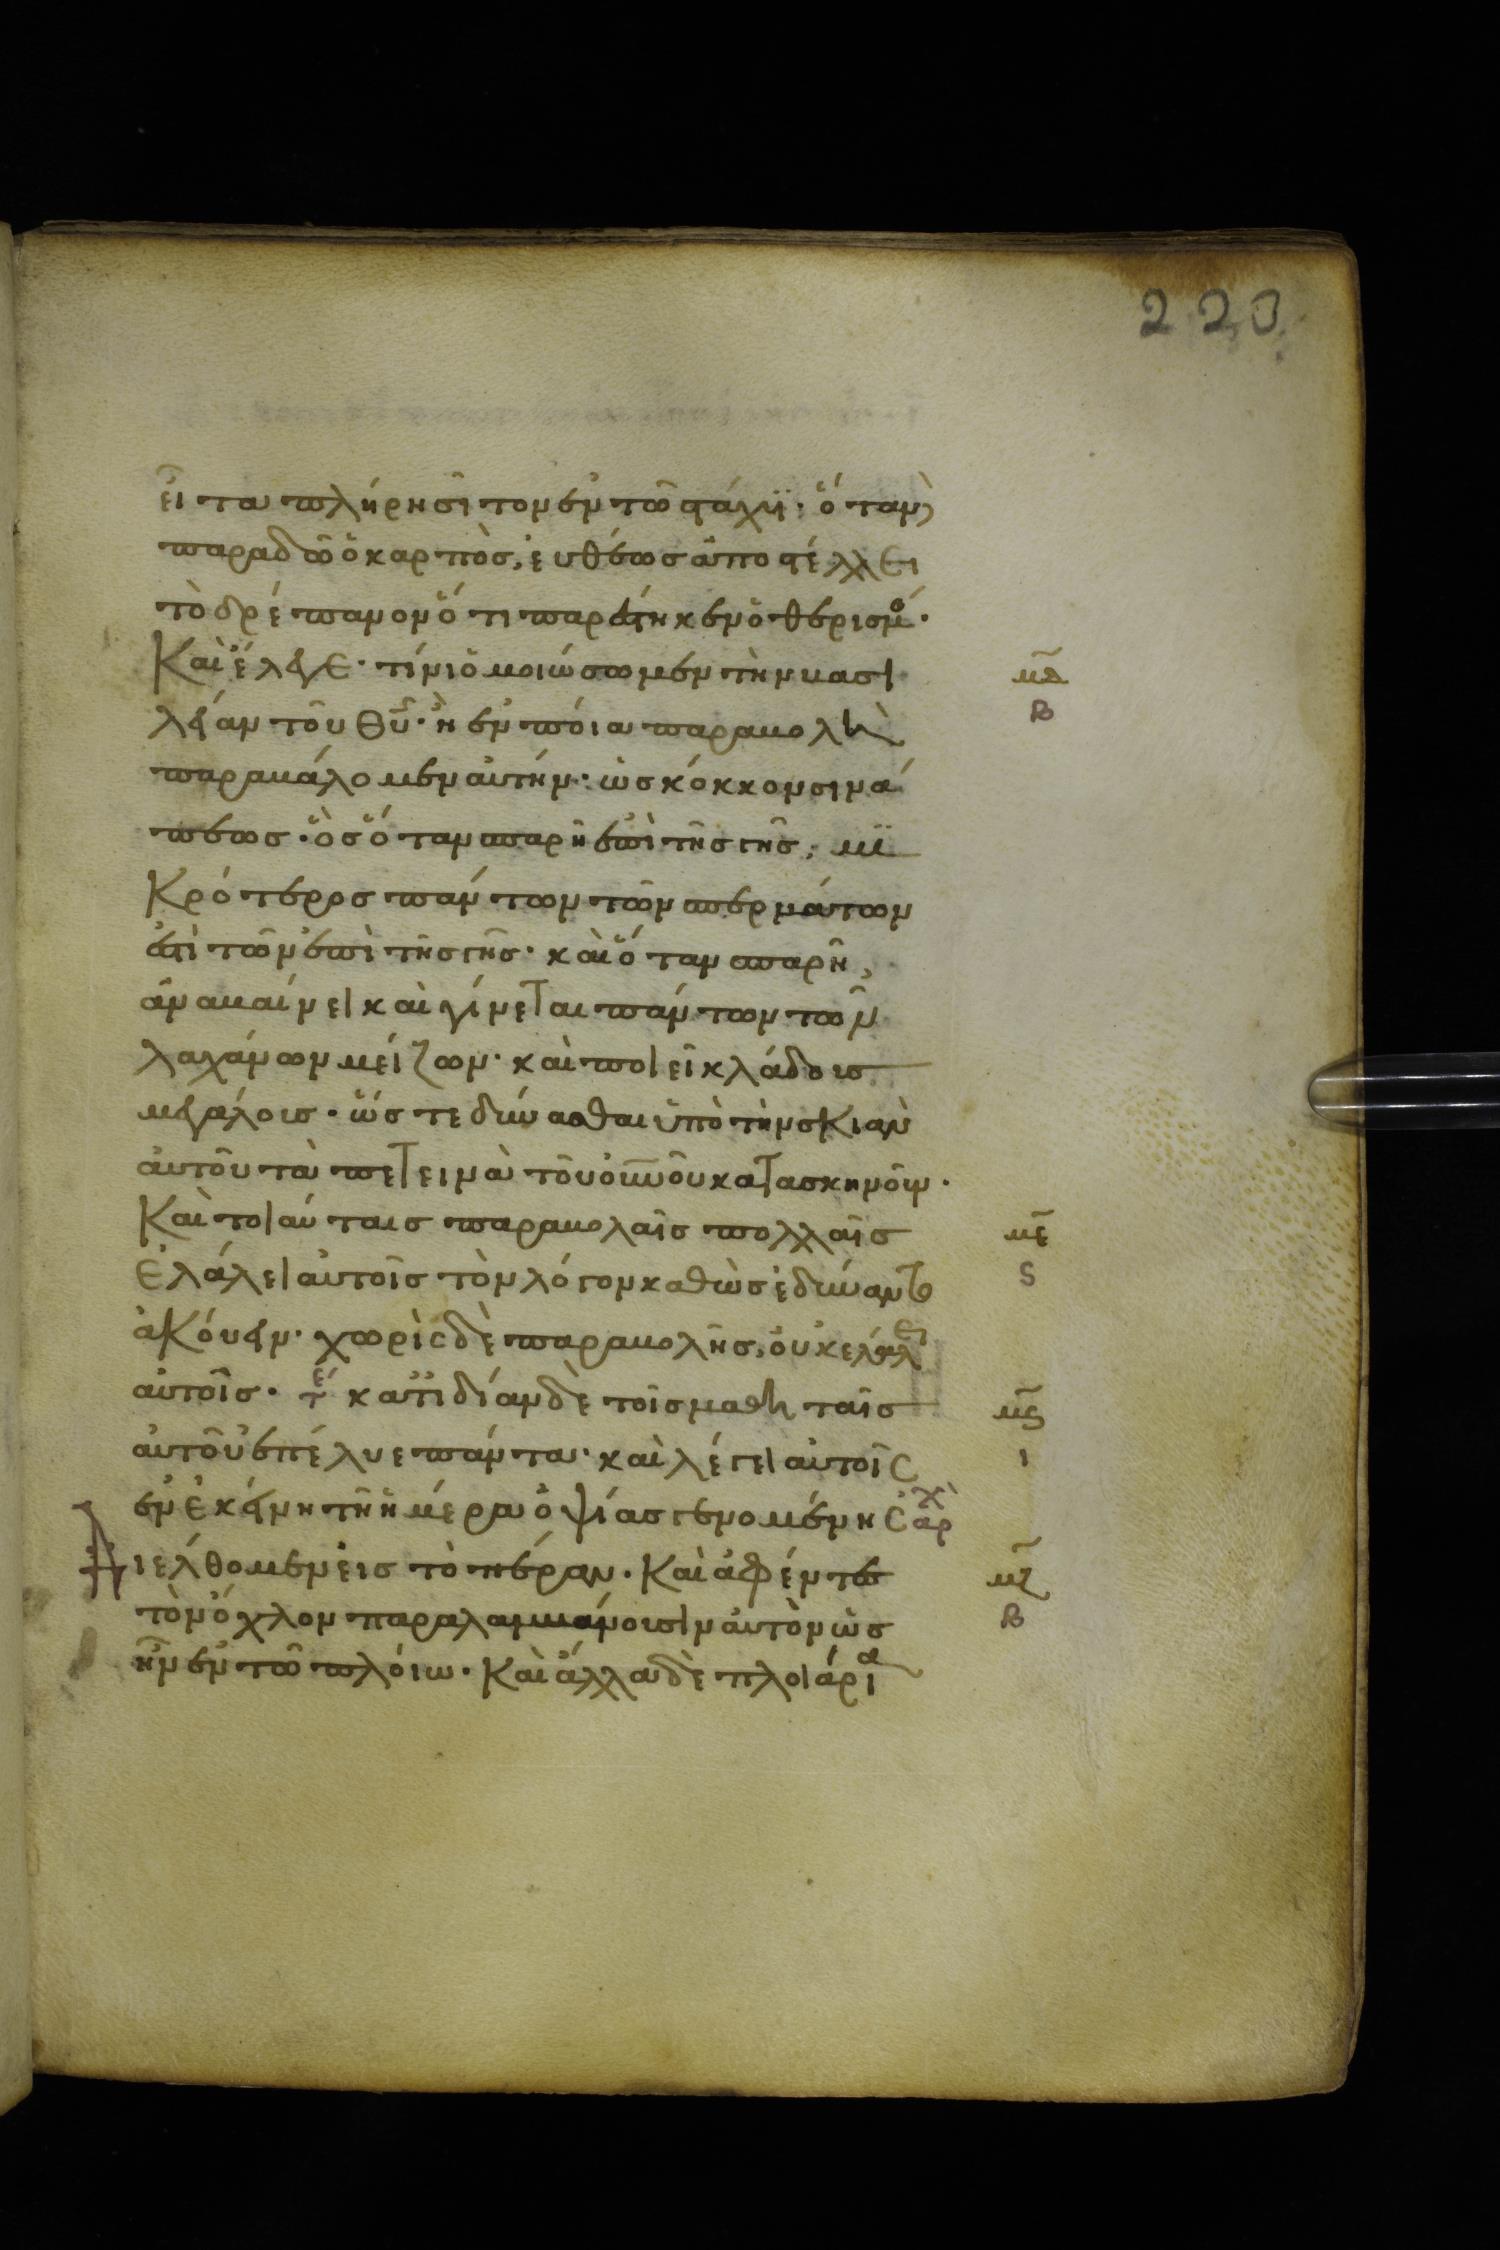 220
εἶτα πλήρη σῖτον ἐν τῶ στάχυϊ· ὅταν
παραδῶ ὁ καρπὸς, ἐυθέως ἀποστέλλει
τὸ δρέπανον ὅτι παρέστηκεν ὁ θερισμό·
Καὶ ἔλεγε· τίνι ὁμοιώσωμεν τὴν βασι
λείαν τοῦ θῦ· ἢ ἐν ποία παραβολῆ
παραβάλομεν αὐτήν· ὡς κόκκον σινά
πεως· ὃς ὅταν σπαρῆ ἐπὶ τῆς γῆς, μι
κρότερος πάντων τῶν σπερμάτων
ἐστὶ τῶν ἐπὶ τῆς γῆς· καὶ ὅταν σπαρῆ,
ἀναβαίνει καὶ γίνεται πάντων τῶν
λαχάνων μείζων· καὶ ποιεῖ κλάδους
μεγάλους· ὥστε δύνασθαι ὑπὸ τὴν σκιὰν
αὐτοῦ τὰ πετεινὰ τοῦ οὐνοῦ κατασκηνοῦν·
Καὶ τοιαύταις παραβολαῖς πολλαῖς
ἐλάλει αὐτοῖς τὸν λόγον καθὼς ἐδύναντο
ἀκούειν· χωρὶς δὲ παραβολῆς, οὐκ ἐλάλει
αὐτοῖς· τέ κατιδίαν δὲ τοῖς μαθηταῖς
αὐτοῦ ἐπέλυε πάντα· καὶ λέγει αὐτοῖς
ἐν ἐκείνη τῆ ἡμέρα ὀψίας γενομένης ἀρχ
Διέλθομεν εἰς τὸ πέραν· Καὶ ἀφέντες
τὸν ὄχλον παραλαμβάνουσιν αὐτὸν ὡς
ἦν ἐν τῶ πλοίω· Καὶ ἄλλα δὲ πλοιάρια
μδ
β
με
ς
μς
ι
μζ
β